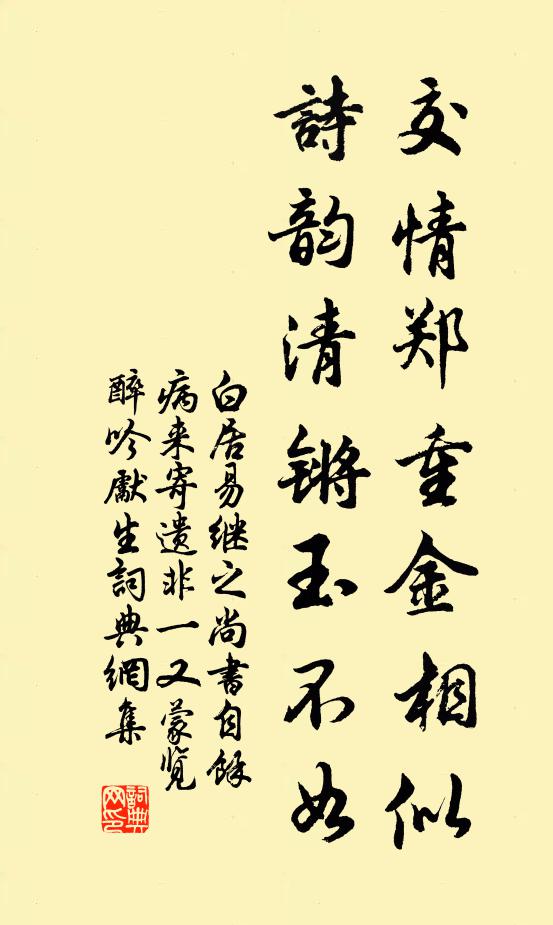 交情郑重金相似
詩韵清锵玉不如
白居易继之尚書自馀
病来寄遗非一又蒙览
醉吟獻生詞典網集
詞典
网印